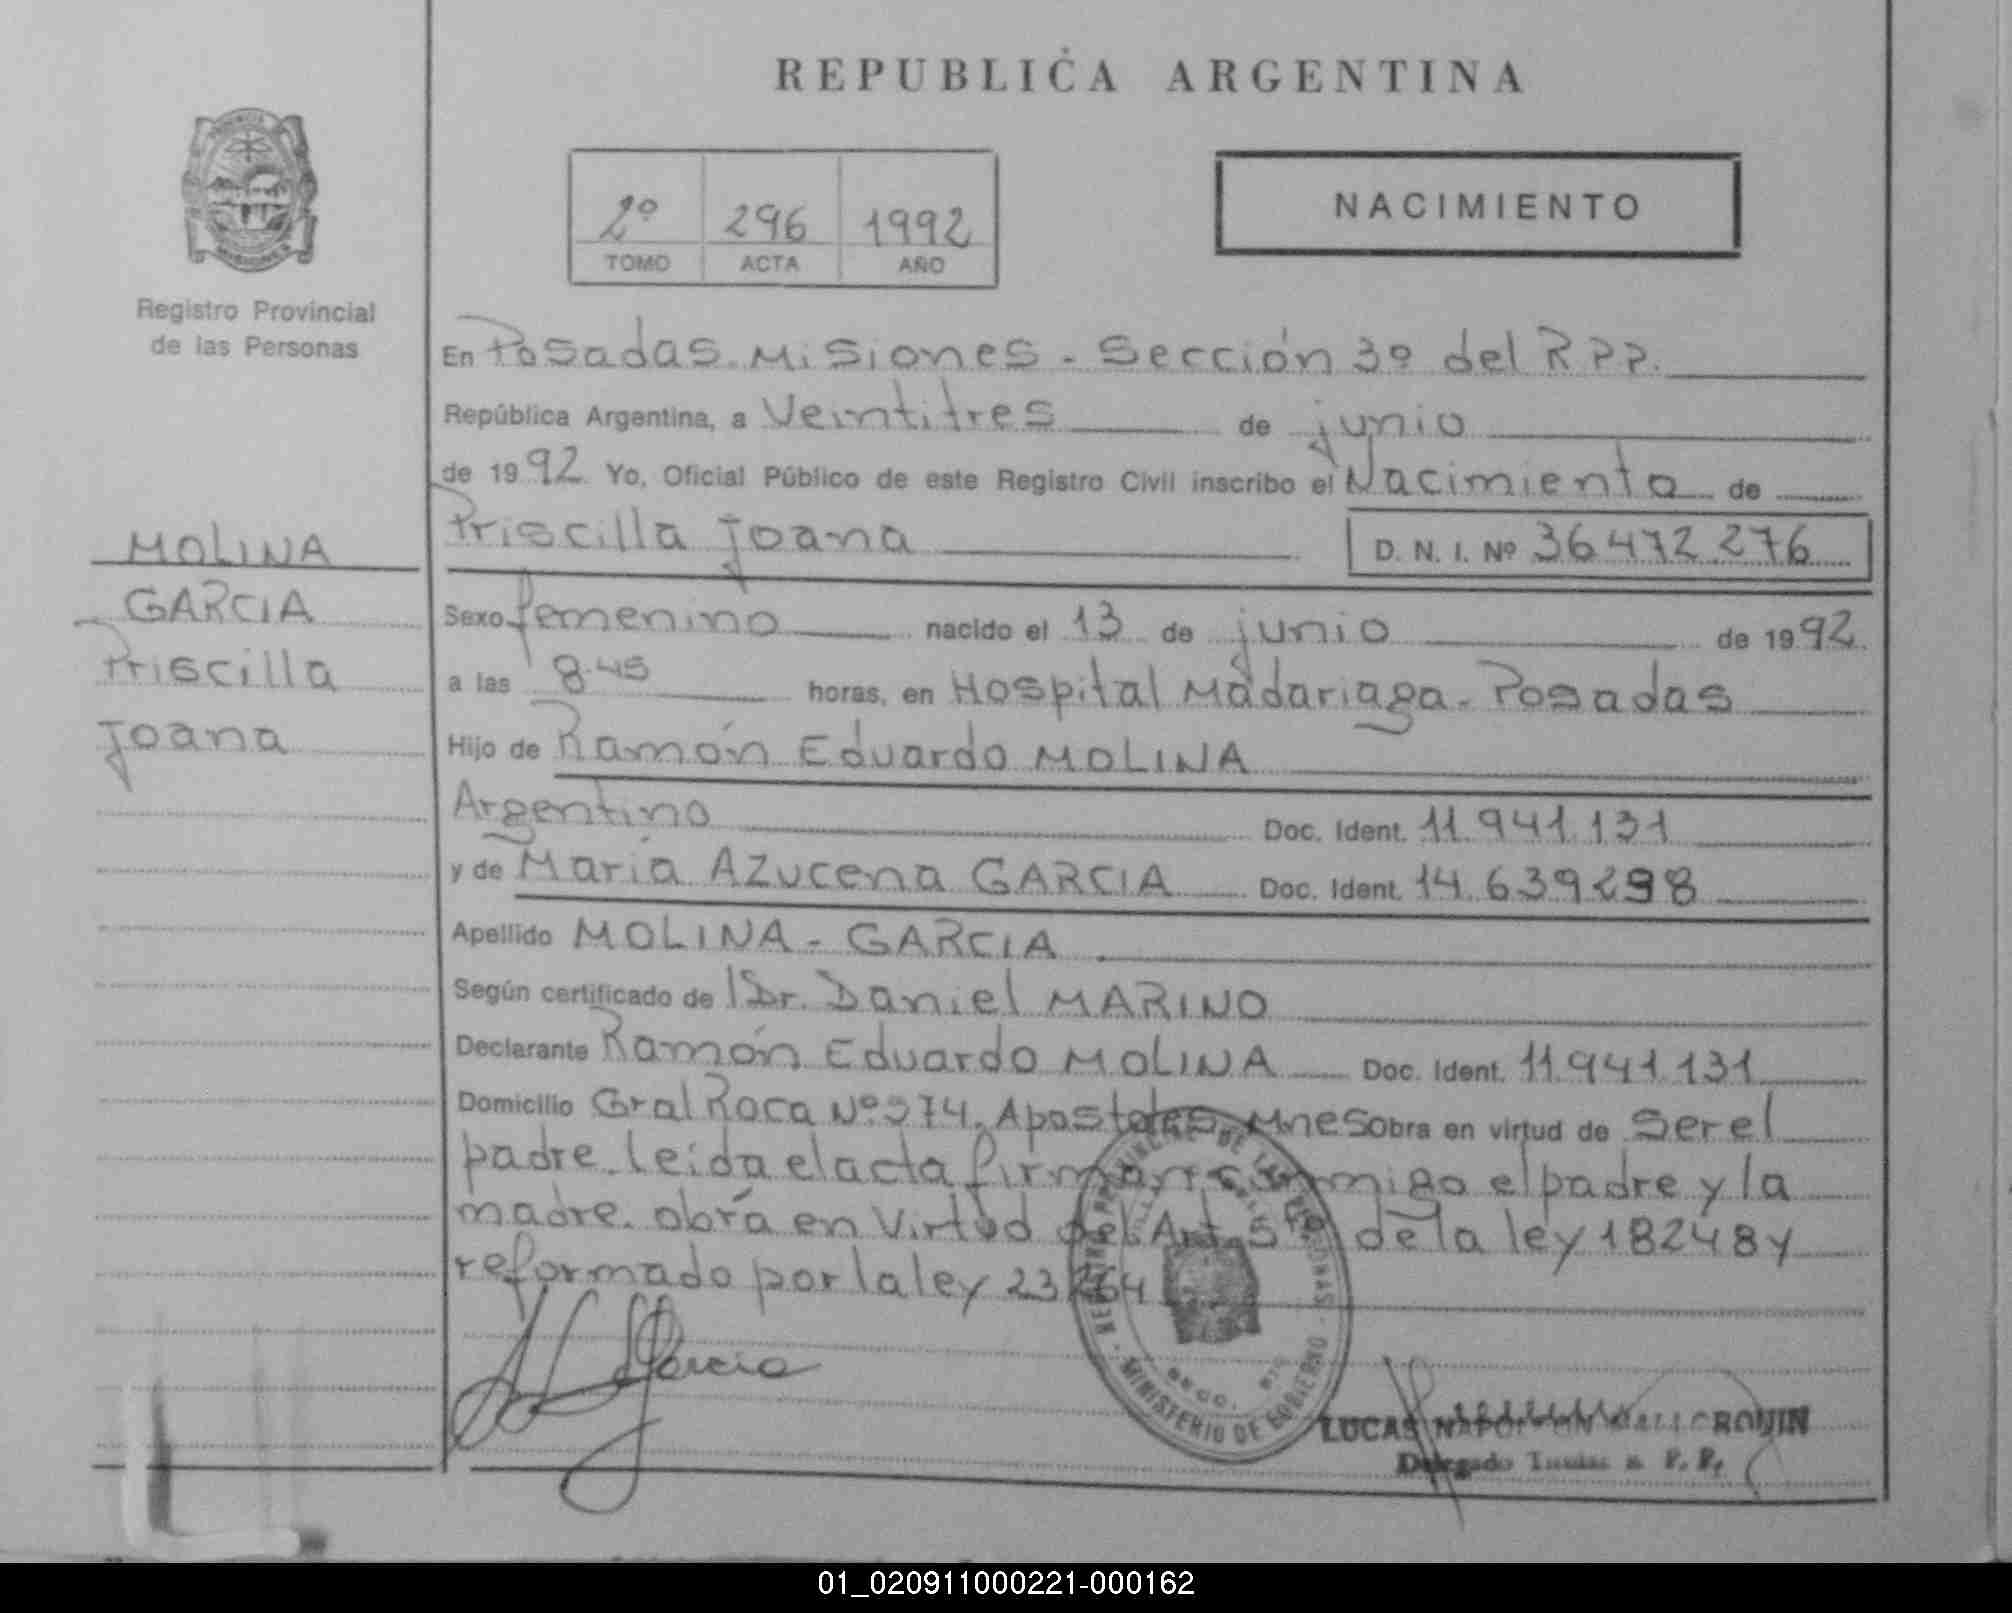 REPUBLICA ARGENTINA
2º 296 1992
TOMO ACTA AÑO
NACIMIENTO
Registro Provincial
de las Personas
MOLINA
GARCIA
Priscilla
Joana
En Posadas. Misiones - Sección 3º del R.P.P.
República Argentina, a Veintitres de junio
de 1992 Yo, Oficial Público de este Registro Civil inscribo el Nacimiento de
Priscilla Joana D. N. I. Nº 36 472 276
Sexo femenino nacido el 13 de junio de 1992
a las 8.45 horas, en Hospital Madariaga - Posadas
Hijo de Ramón Eduardo MOLINA
Argentino Doc. Ident. 11.941.131
y de Maria Azucena GARCIA Doc. Ident. 14.639298
Apellido MOLINA - GARCIA
Según certificado de Dr. Daniel MARINO
Declarante Ramón Eduardo MOLINA Doc. Ident. 11.941.131
Domicilio Gral Roca Nº 974. Apostoles Mnes Obra en virtud de ser el
padre. leída el acta firman conmigo el padre y la
madre. obra en Virtud del Art. 5to de la ley 18248 y
reformado por la ley 23264
Garcia
MINISTERIO DE GOBIERNO
LUCAS NAPOLEON
Delegado
01_020911000221-000162